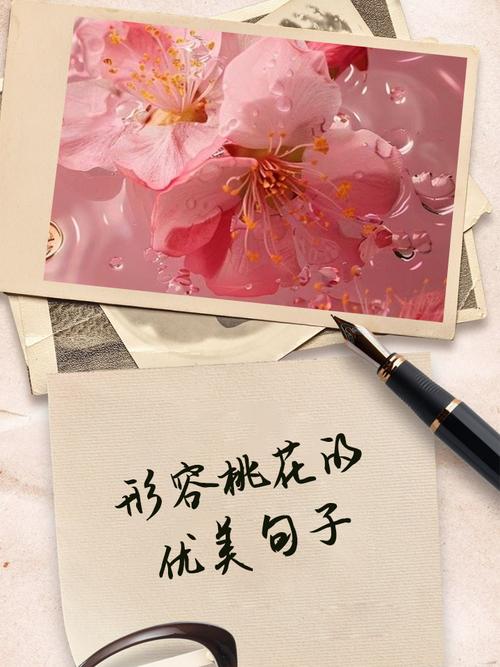 形容桃花的
优美句子